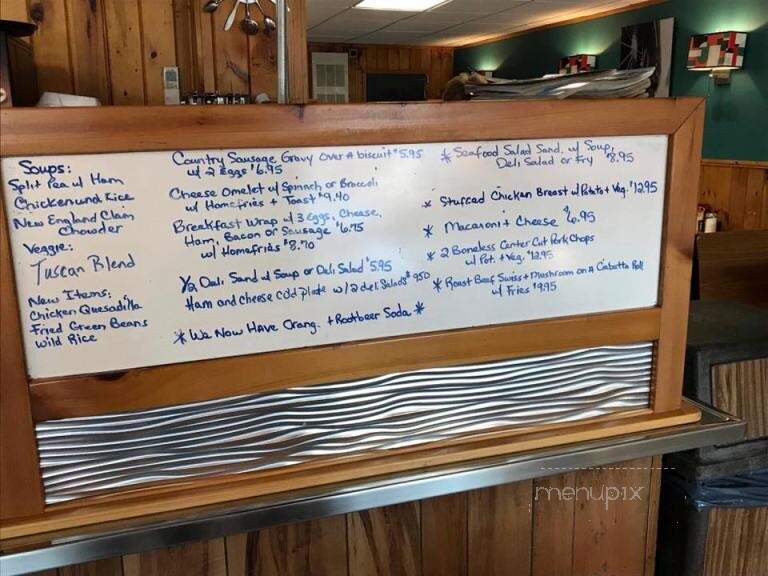 Soups:
Split Pea w/ Ham
Chicken and Rice
New England Clam
Chowder
Veggie:
Tuscan Blend
New Items:
Chicken Quesadilla
Fried Green Beans
Wild Rice
Country Sausage Gravy over A biscuit $5.95
w/ 2 Eggs $6.95
Cheese Omelet w/ Spinach or Broccoli
w/ Homefries + Toast $9.40
Breakfast Wrap w/ 3 eggs, Cheese,
Ham, Bacon or Sausage $6.75
w/ Homefries $8.70
1/2 Deli Sand w/ Soup or Deli Salad $5.95
Ham and cheese cold plate w/ 2 deli Salads $9.50
* We Now Have Orang. + Rootbeer Soda *
* Seafood Salad Sand. w/ Soup,
Deli Salad or Fry $8.95
* Stuffed Chicken Breast w/ Potato + Veg. $12.95
* Macaroni + Cheese $6.95
* 2 Boneless Center Cut Pork Chops
w/ Pot. + Veg. $12.95
* Roast Beef Swiss + Mushroom on A Ciabatta Roll
w/ Fries $9.95
menupix